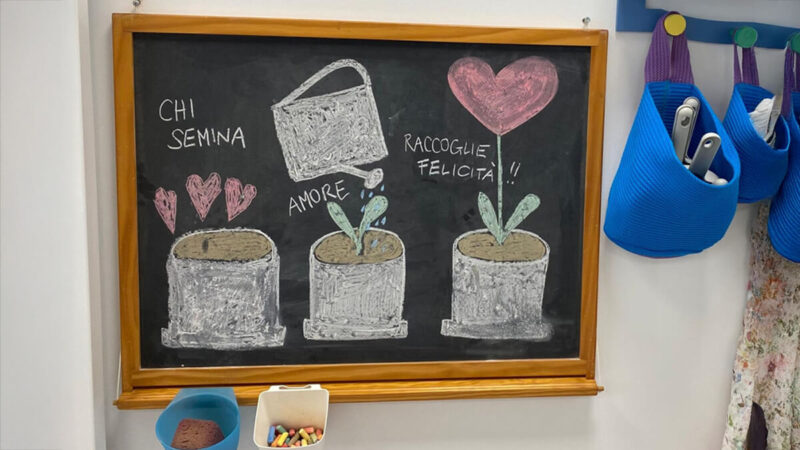 CHI
SEMINA
AMORE
RACCOGLIE
FELICITÀ !!